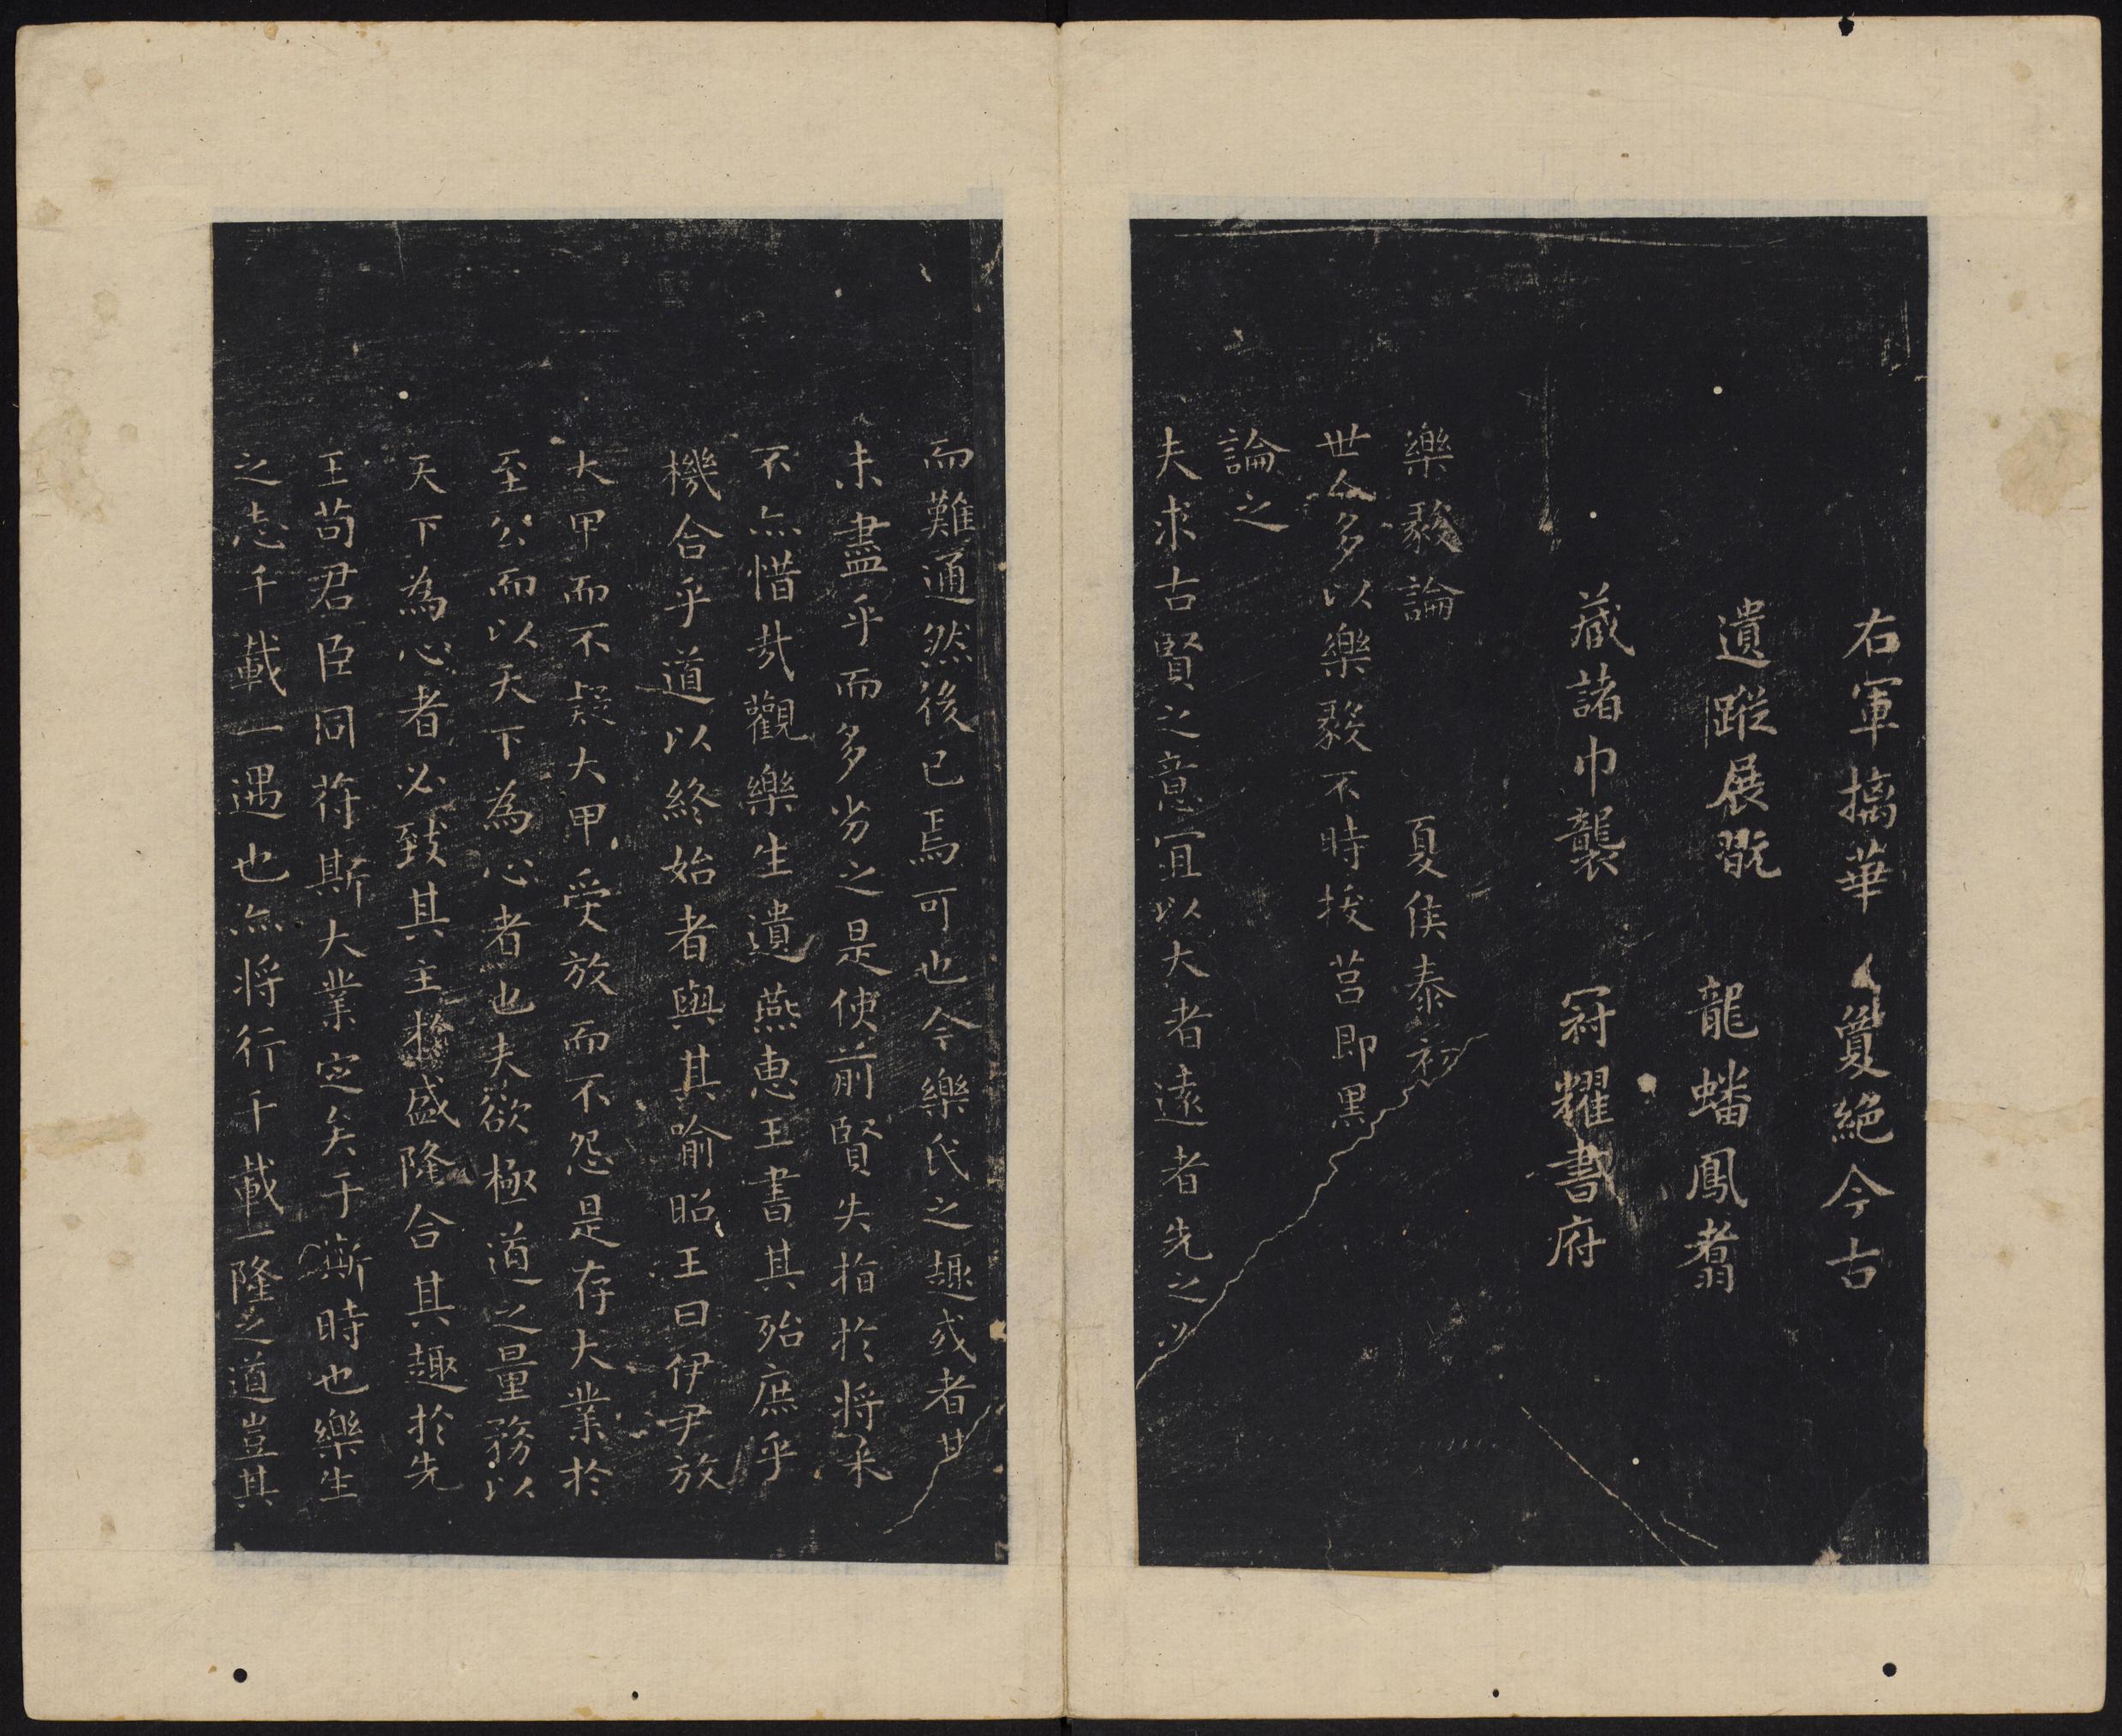 右軍摛華 敻絕今古
遺蹤展翫 龍蟠鳳翥
藏諸巾襲 冠耀書府
樂毅論 夏侯泰初
世人多以樂毅不時拔莒即墨
論之
夫求古賢之意宜以大者遠者先之必
而難通然後已焉可也今樂氏之趣或者其
未盡乎而多劣之是使前賢失指於將來
不亦惜哉觀樂生遺燕惠王書其殆庶乎
機合乎道以終始者與其喻昭王曰伊尹放
大甲而不疑大甲受放而不怨是存大業於
至公而以天下為心者也夫欲極道之量務以
天下為心者必致其主於盛隆合其趣於先
王苟君臣同符斯大業定矣于斯時也樂生
之志千載一遇也亦將行千載一隆之道豈其